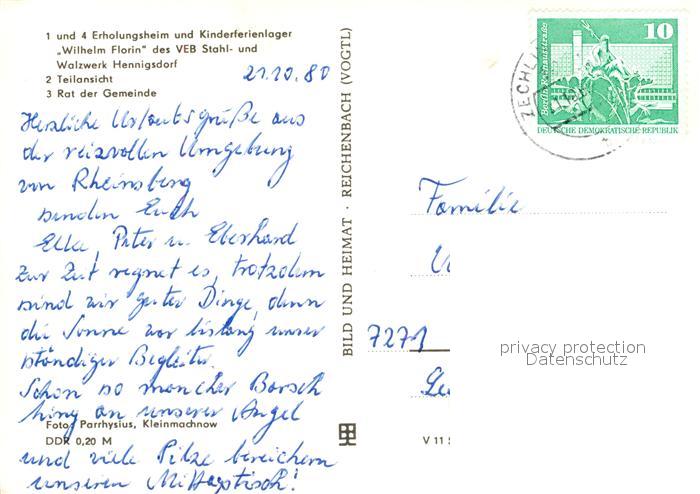 1 und 4 Erholungsheim und Kinderferienlager
„Wilhelm Florin" des VEB Stahl- und
Walzwerk Hennigsdorf
2 Teilansicht
3 Rat der Gemeinde
21.10.80
Herzliche Urlaubsgrüße aus
der reizvollen Umgebung
von Rheinsberg
senden Euch
Elke, Peter u. Eberhard
Zur Zeit regnet es, trotzdem
sind wir guter Dinge, denn
die Sonne war bislang unser
ständiger Begleiter.
Schon so mancher Barsch
hing an unserer Angel
und viele Pilze bereichern
unseren Mittagstisch!
Foto: Parrhysius, Kleinmachnow
DDR 0,20 M
BILD UND HEIMAT · REICHENBACH (VOGTL)
V 11
10
DEUTSCHE DEMOKRATISCHE REPUBLIK
ZECHL
Familie
7271
privacy protection
Datenschutz